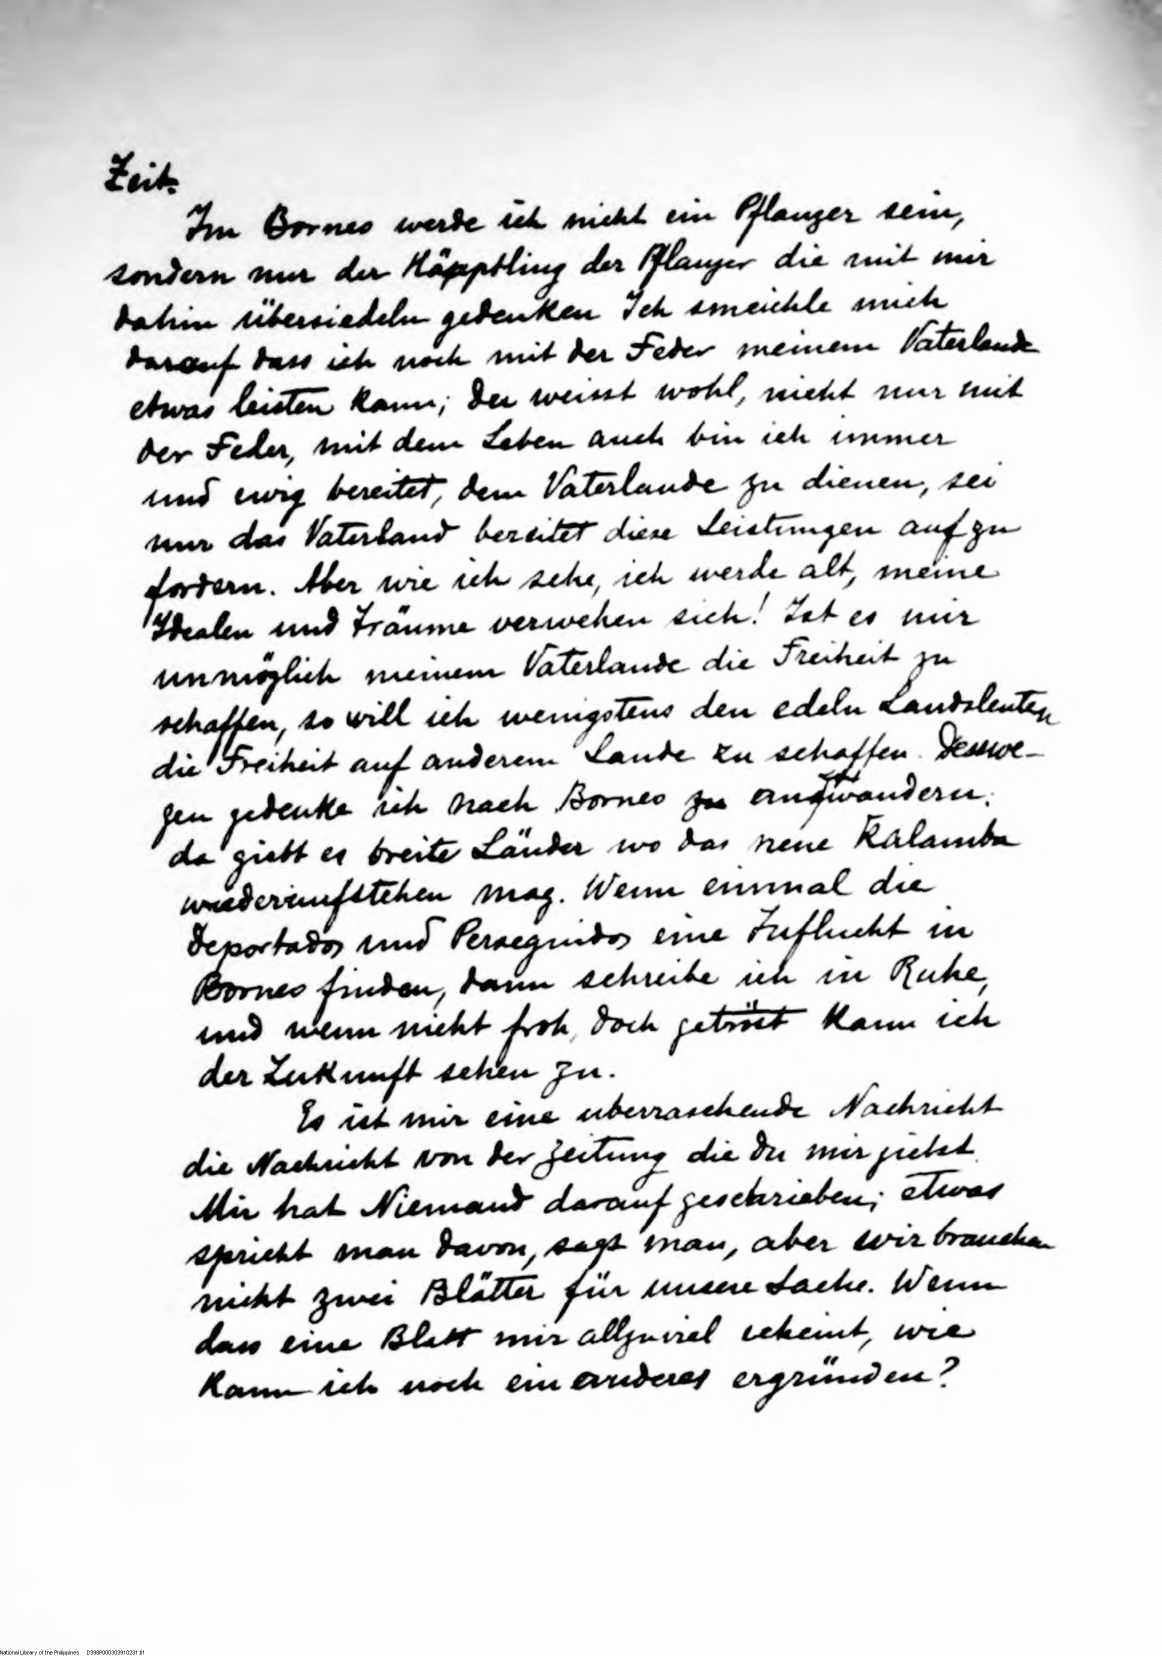 Zeit.
Im Borneo werde ich nicht ein Pflanzer sein,
sondern nur der Häpptling der Pflanzer die mit mir
dahin übersiedeln gedenken Ich smeichle mich
darauf dass ich noch mit der Feder meinem Vaterlande
etwas leisten kann; du weisst wohl, nicht nur mit
der Feder, mit dem Leben auch bin ich immer
und ewig bereitet, dem Vaterlande zu dienen, sei
nur das Vaterland bereitet diese Leistungen aufzu
fordern. Aber wie ich sehe, ich werde alt, meine
Idealen und Träume verwehen sich! Ist es mir
unmöglich meinem Vaterlande die Freiheit zu
schaffen, so will ich wenigstens den edeln Landsleuten
die Freiheit auf anderem Lande zu schaffen. Deswe-
gen gedenke ich nach Borneo zu auswandern:
da giebt es breite Länder wo das neue Kalamba
wiederaufstehen mag. Wenn einmal die
Deportados und Perseguidos eine Zuflucht in
Borneo finden, dann schreibe ich in Ruhe,
und wenn nicht froh, doch getröst kann ich
der Zukunft sehen zu.
Es ist mir eine uberraschende Nachricht
die Nachricht von der Zeitung die du mir giebst.
Mir hat Niemand darauf geschrieben; etwas
spricht man davon, sagt man, aber wir brauchen
nicht zwei Blätter für unsere Sache. Wenn
dass eine Blatt mir allzuviel scheint, wie
kann ich noch ein anderes ergründen?
National Library of the Philippines